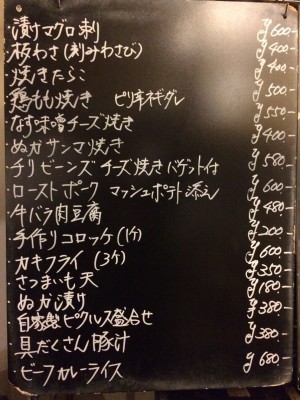 ・漬けマグロ刺 ¥600-
・板わさ(刻みわさび) ¥400-
・焼きたらこ ¥400-
・鶏もも焼き ピリ辛ネギダレ ¥500-
・なす味噌チーズ焼き ¥550-
・ぬかサンマ焼き ¥400-
・チリビーンズチーズ焼き バゲット付 ¥580-
・ローストポーク マッシュポテト添え ¥600-
・牛バラ肉豆腐 ¥480-
・手作りコロッケ(1ケ) ¥200-
・カキフライ (3ケ) ¥600-
・さつまいも天 ¥350-
・ぬか漬け ¥180-
・自家製ピクルス盛合せ ¥380-
・具だくさん豚汁 ¥380-
・ビーフカレーライス ¥680-